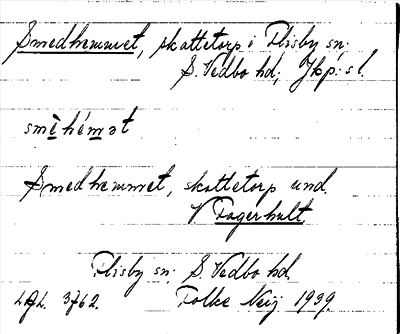 Smedhemmet, skattetorp i Flisby sn:
S. Vedbo hd; Jkp: s l.
smèhémət
Smedhemmet, skattetorp und.
V Fagerhult.
Flisby sn: S. Vedbo hd,
3762. Folke Neij 1939.